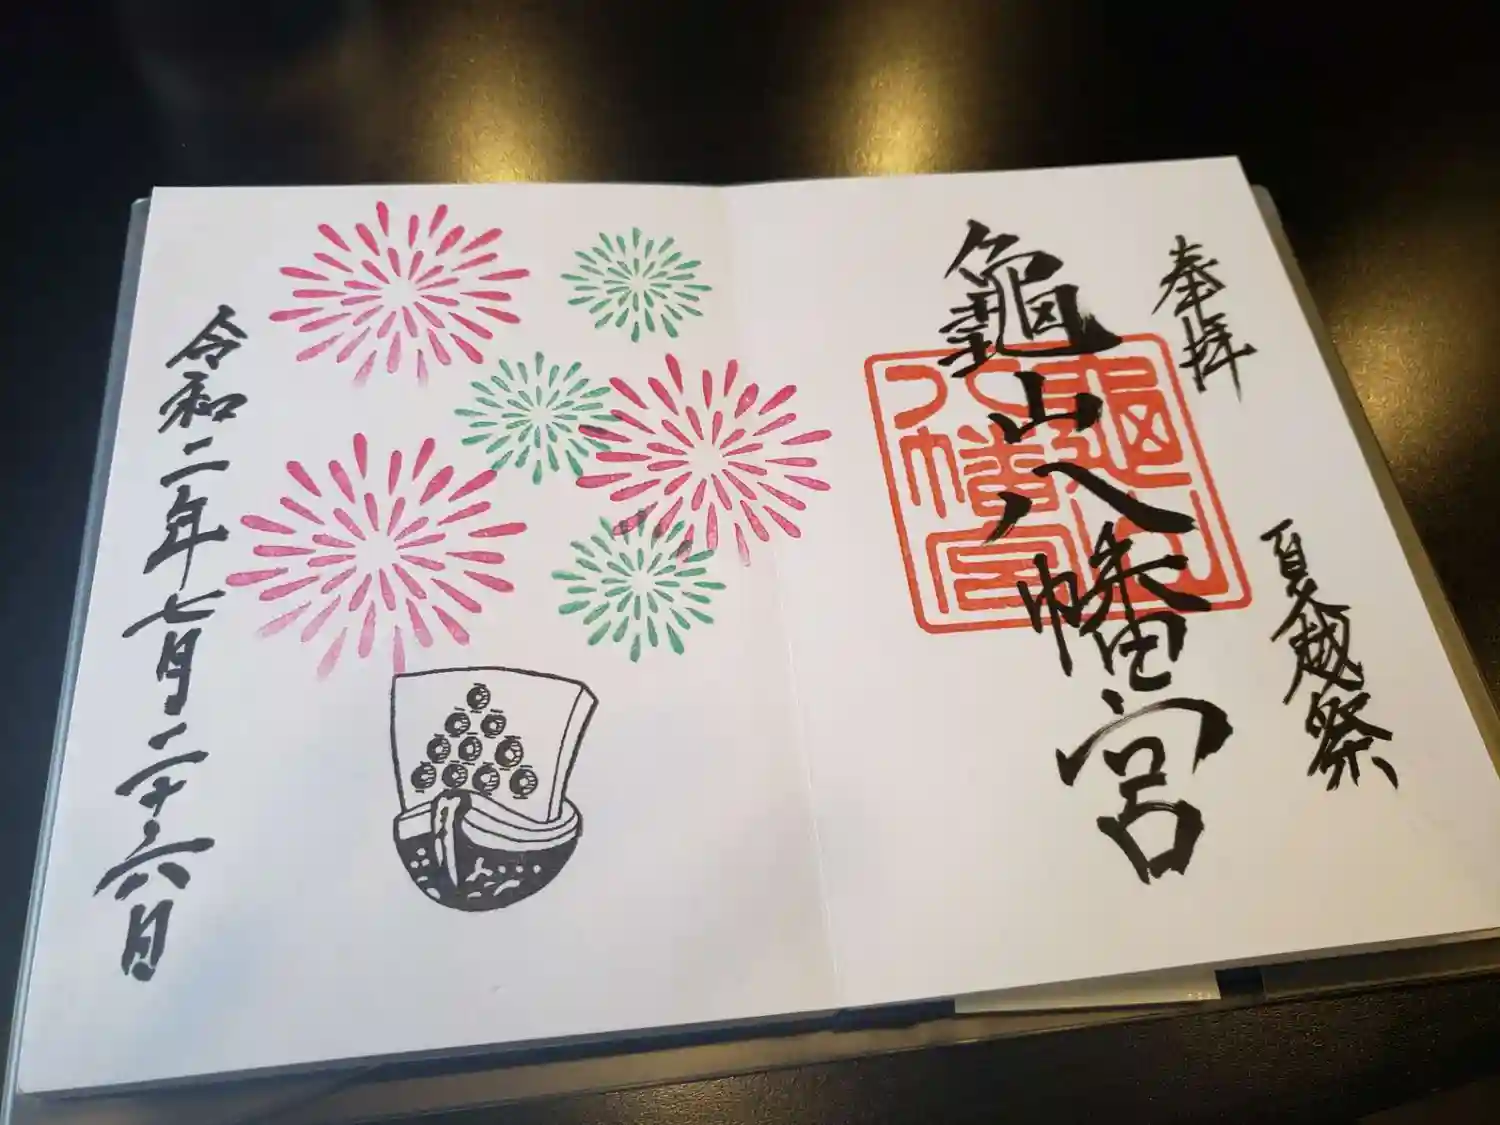 奉拝
夏越祭
龜山八幡宮
龜山
八幡宮
令和二年七月二十六日